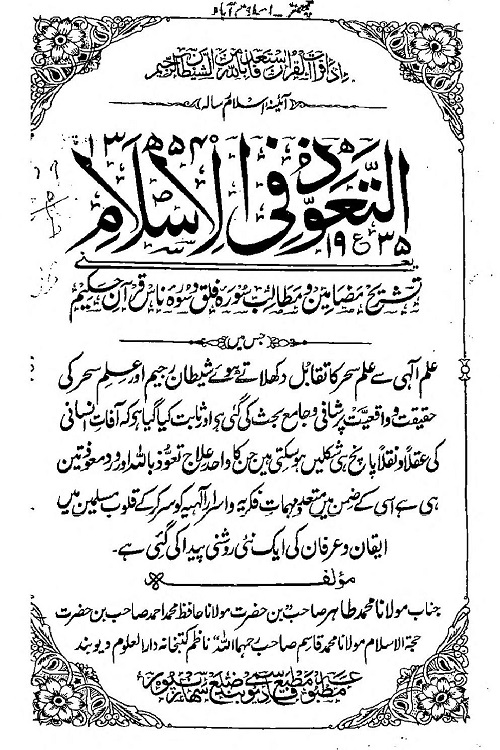 اذا قرأت القرآن فاستعذ باللہ من الشیطان الرجیم
آئینۂ اسلام سالہ
۱۳۵۴ھ
التعوذ فی الاسلام
۱۹۳۵ع
یعنی
تشریح مضامین و مطالب سورہ فلق و سورہ ناس قرآن حکیم
جس میں
علم الٰہی سے علم سحر کا تقابل دکھلاتے ہوئے شیطان رجیم اور علم سحر کی
حقیقت و واقعیت پر شافی و جامع بحث کی گئی ہے اور ثابت کیا گیا ہے کہ آفات انسانی
کی عقلاً و نقلاً پانچ ہی شکلیں ہوسکتی ہیں جن کا واحد علاج تعوذ باللہ اور ورد معوذتین
ہی ہے اسی کے ضمن میں متعدد مہمات فکریہ و اسرار آلہیہ کو سر کر کے قلوب مسلمین میں
ایقان و عرفان کی ایک نئی روشنی پیدا کی گئی ہے۔
مؤلفہ
جناب مولانا محمد طاہر صاحب بن حضرت مولانا حافظ محمد احمد صاحب بن حضرت
حجۃ الاسلام مولانا محمد قاسم صاحب رحمہما اللہ ناظم کتبخانہ دار العلوم دیوبند
مطبوعہ مطبع دیوبند ضلع سہارنپور